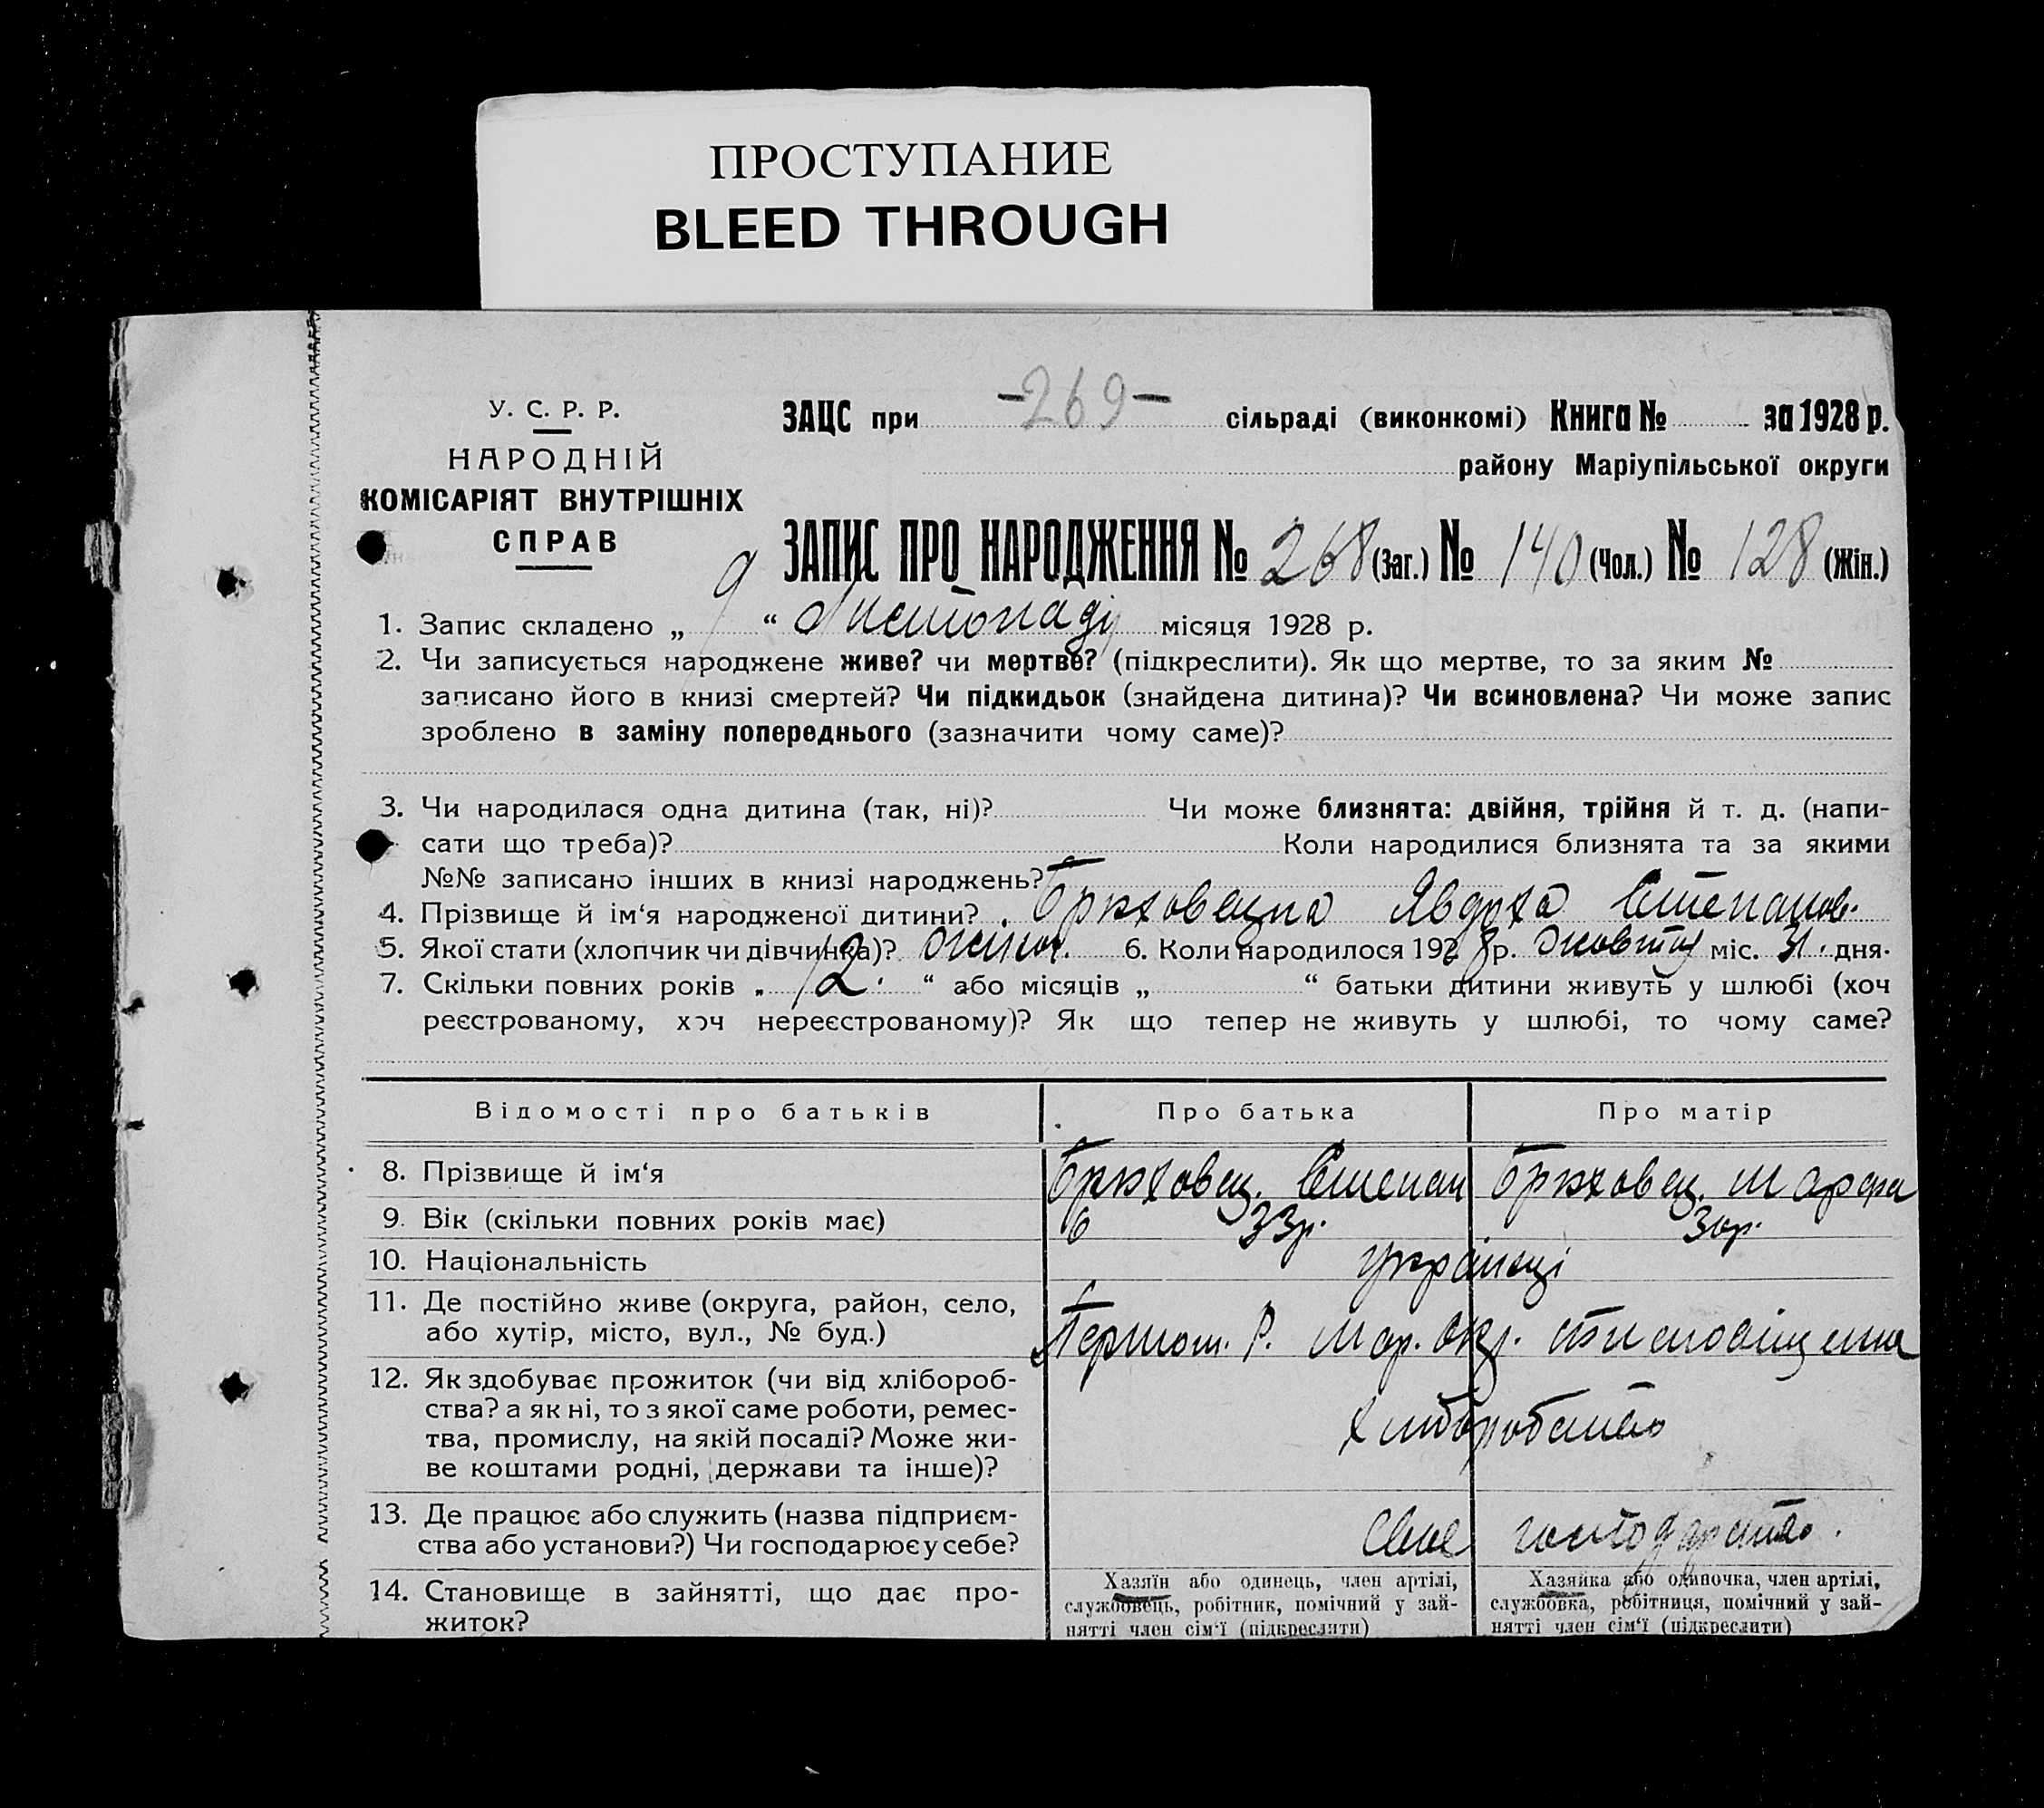 ПРОСТУПАНИЕ
BLEED THROUGH
-269-
У. С. Р. Р.
НАРОДНІЙ
КОМІСАРІЯТ ВНУТРІШНІХ
СПРАВ
ЗАЦС при сільраді (виконкомі) Книга № за 1928 р.
району Маріупільської округи
ЗАПИС ПРО НАРОДЖЕННЯ № 268 (Заг.) № 140 (Чол.) № 128 (Жін.)
1. Запис складено „ 9 “ Листопаду місяця 1928 р.
2. Чи записується народжене живе? чи мертве? (підкреслити). Як що мертве, то за яким №
записано його в книзі смертей? Чи підкидьок (знайдена дитина)? Чи всиновлена? Чи може запис
зроблено в заміну попереднього (зазначити чому саме)?
3. Чи народилася одна дитина (так, ні)? Чи може близнята: двійня, трійня й т. д. (напи-
сати що треба)? Коли народилися близнята та за якими
№№ записано інших в книзі народжень?
4. Прізвище й ім‘я народженої дитини? Брюховецна Явдоха Степанов.
5. Якої стати (хлопчик чи дівчинка)? жіноч. 6. Коли народилося 1928 р. Жовтня міс. 31. дня.
7. Скільки повних років „ 12. “ або місяців „ “ батьки дитини живуть у шлюбі (хоч
реєстрованому, хоч нереєстрованому)? Як що тепер не живуть у шлюбі, то чому саме?
Відомості про батьків Про батька Про матір
8. Прізвище й ім‘я Брюховец. Степан Брюховец. Марфа
9. Вік (скільки повних років має) 33р. 30р.
10. Національність українці
11. Де постійно живе (округа, район, село,
або хутір, місто, вул., № буд.) Першот. Р. Мар. Окр.
12. Як здобуває прожиток (чи від хлібороб-
ства? а як ні, то з якої саме роботи, ремес-
тва, промислу, на якій посаді? Може жи-
ве коштами родні, держави та інше)? Хліборобство
13. Де працює або служить (назва підприєм-
ства або установи?) Чи господарює у себе? Своє господарство.
14. Становище в зайнятті, що дає про-
житок?
Хазяїн або одинець, член артілі,
службовець, робітник, помічний у зай-
нятті член сім‘ї (підкреслити)
Хазяйка або одиночка, член артілі,
службовка, робітниця, помічний у зай-
нятті член сім‘ї (підкреслити)